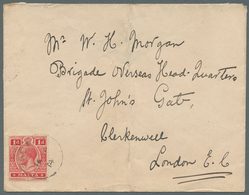 Mr W. H. Morgan
Brigade Overseas Head-Quarters
St. John's Gate,
Clerkenwell
London E.C
MALTA